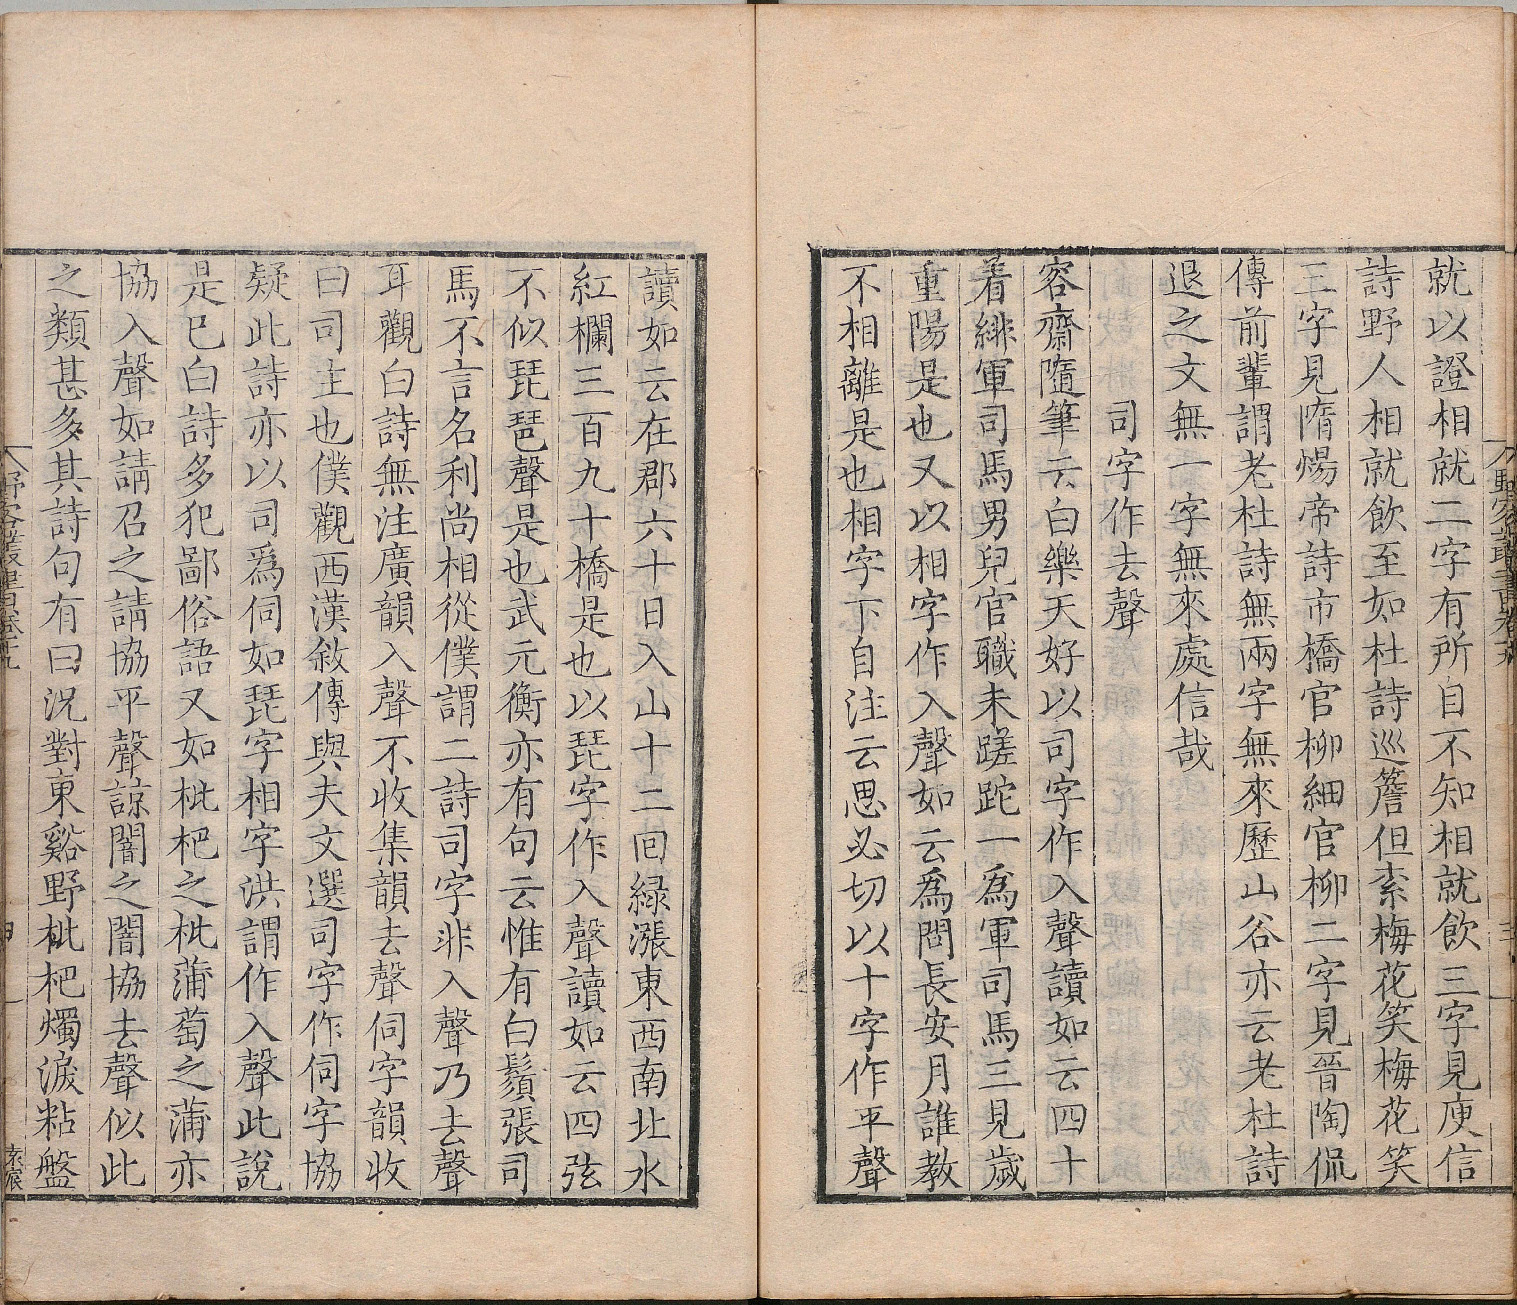 就以證相就二字有所自不知相就飲三字見庾信
詩野人相就飲至如杜詩巡簷但索梅花笑梅花笑
三字見隋煬帝詩市橋官柳細官柳二字見晉陶侃
傳前輩謂老杜詩無兩字無來歷山谷亦云老杜詩
退之文無一字無來處信哉
司字作去聲
容齋隨筆云白樂天好以司字作入聲讀如云四十
着緋軍司馬男兒官職未蹉跎一爲軍司馬三見歲
重陽是也又以相字作入聲如云爲問長安月誰教
不相離是也相字下自注云思必切以十字作平聲
讀如云在郡六十日入山十二回綠漲東西南北水
紅欄三百九十橋是也以琵字作入聲讀如云四弦
不似琵琶聲是也武元衡亦有句云惟有白鬚張司
馬不言名利尚相從僕謂二詩司字非入聲乃去聲
耳觀白詩無注廣韻入聲不收集韻去聲伺字韻收
曰司主也僕觀西漢敘傳與夫文選司字作伺字協
疑此詩亦以司爲伺如琵字相字洪謂作入聲此說
是已白詩多犯鄙俗語又如枇杷之枇蒲萄之蒲亦
協入聲如請召之請協平聲諒闇之闇協去聲似此
之類甚多其詩句有曰況對東谿野枇杷燭淚粘盤
野客叢書卷十九
四